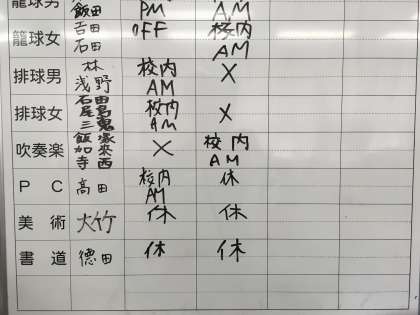 籠球男 飯田 PM AM
籠球女 吉田 石田 OFF 校内 AM
排球男 林 浅野 校内 AM ×
排球女 石田 尾島 三鬼 校内 AM ×
吹奏楽 飯塚 加来 寺西 × 校内 AM
PC 高田 校内 AM 休
美術 大竹 休 休
書道 徳田 休 休